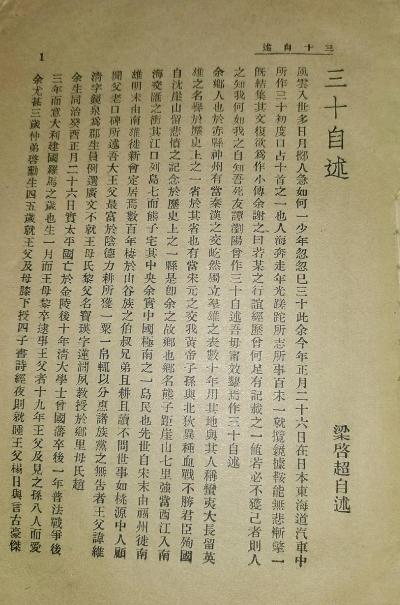 三十自述
1
三十自述
梁啓超自述
風雲入世多日月擲人急如何一少年忽忽已三十此余今年正月二十六日在日本東海道汽車中
所作三十初度口占十首之一也人海奔走年光蹉跎所志所事百未一就攬鏡據鞍能無悲慚擎一
既結集其文復欲為作小傳余謝之曰若某之行誼經歷曾何足有記載之一值若必不獲已者則人
之知我何如我之自知吾死友譚瀏陽曾作三十自述吾毋甯效顰焉作三十自述
余鄉人也於赤縣神州有當秦漢之交屹然獨立羣雄之表數十年用其地與其人稱蠻夷大長留英
雄之名譽於歷史上之一省於其省也有當宋元之交我黃帝子孫與北狄異種血戰不勝君臣殉國
自沈崖山留悲憤之記念於歷史上之一縣是卽余之故鄉也鄉名熊子距崖山七里強當西江入南
海交匯之衝其江口列島七而熊子宅其中央余實中國極南之一島民也先世自宋末由福州徙南
雄明末由南雄徙新會定居焉數百年棲於山谷族之伯叔兄弟且耕且讀不問世事如桃源中人顧
聞父老口碑所述吾大王父最富於陰德力耕所獲一粟一帛輒以分惠諸族黨之無告者王父諱維
清字鏡泉為郡生員例選廣文不就王母氏黎父名寶瑛字蓮澗夙教授於鄉里母氏趙
余生同治癸酉正月二十六日實太平國亡於金陵後十年清大學士曾國藩卒後一年普法戰爭後
三年而意大利建國羅馬之歲也生一月而王母黎卒逮事王父者十九年王父及見之孫八人而愛
余尤甚三歲仲弟啓勳生四五歲就王父及母膝下授四子書詩經夜則就睡王父榻日與言古豪傑